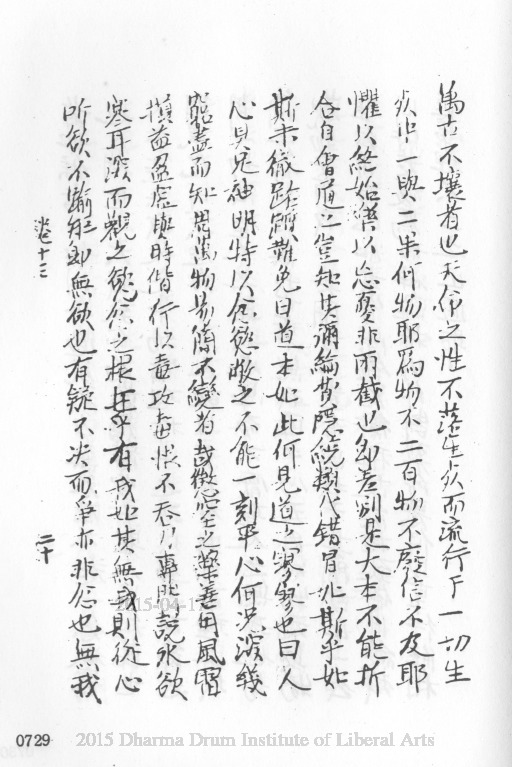 萬古不壞者也天命之性不落生死而流行于一切生
死中一與二果何物耶為物不二百物不廢信不友耶
懼以終始樂以忘憂非兩截也即差別是大本不能折
合自會通之豈知其彌綸費隱統類代錯冒此斯乎如
斯未徹跲躓難免曰道本如此何見道之寥寥也曰人
心具兒神明特以忿慾蔽之不能一刻平心何況淡幾
臨盡而知
萬物易簡不變者
微空之藥善因風習
損益盈虛與時偕行以毒攻毒恨不吞
事說水欲
寒耳深而觀之慾忿之根在乎有我如其無我則從心
所欲不踰矩即無欲也有疑不決而爭亦非忿也無我
卷十三
二十
2015-04-1
0729
2015 Dharma Drum Institute of Liberal Arts